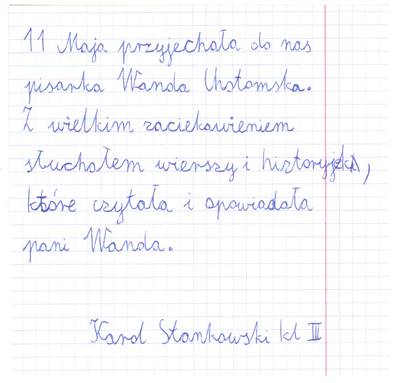 11 Maja przyjechała do nas
pisarka Wanda Chotomska.
Z wielkim zaciekawieniem
słuchałem wierszy i historyjek,
które czytała i opowiadała
pani Wanda.
Karol Stankowski kl III